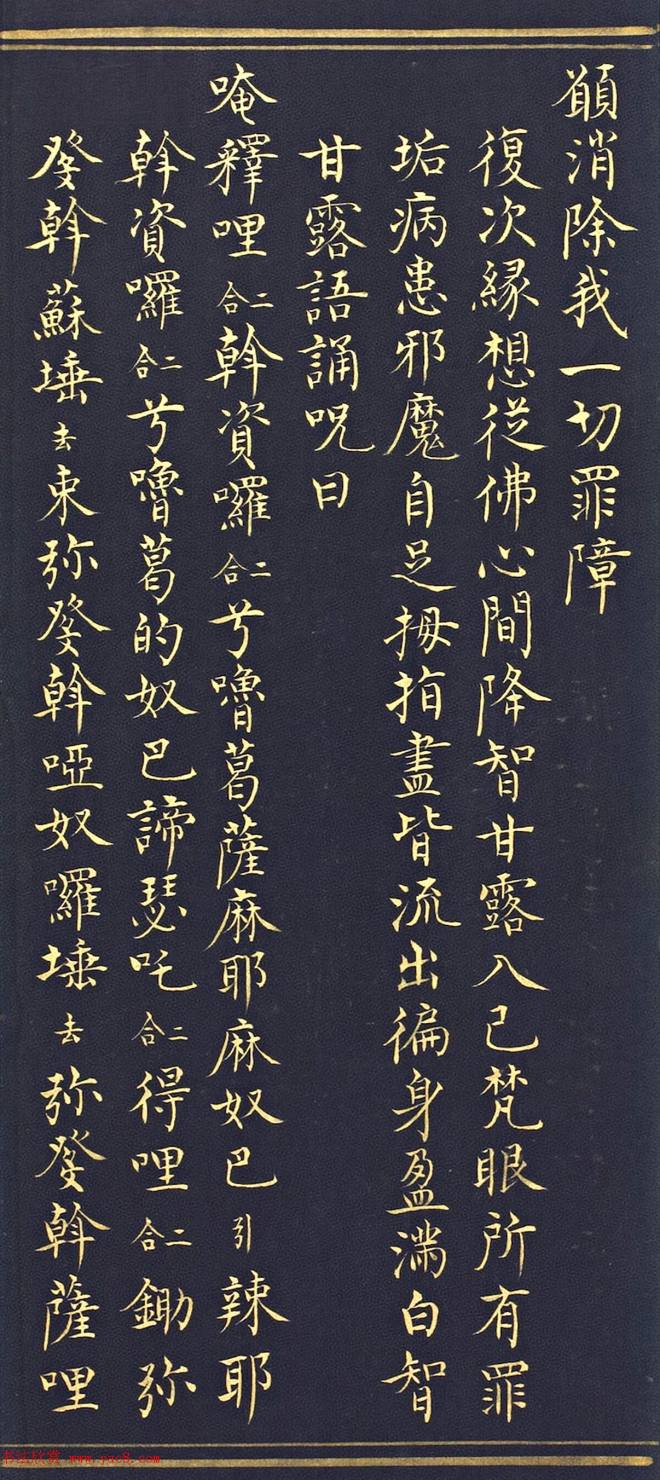 願消除我一切罪障
復次緣想從佛心間降智甘露入己梵眼所有罪
垢病患邪魔自足拇指盡皆流出徧身盈滿白智
甘露語誦呪曰
唵釋哩二合斡資囉二合兮嚕葛薩麻耶麻奴巴引辣耶
斡資囉二合兮嚕葛的奴巴諦瑟吒二合得哩二合鋤弥
發斡蘇埵去束弥發斡啞奴囉埵去弥發斡薩哩
书法欣赏 www.yac8.com